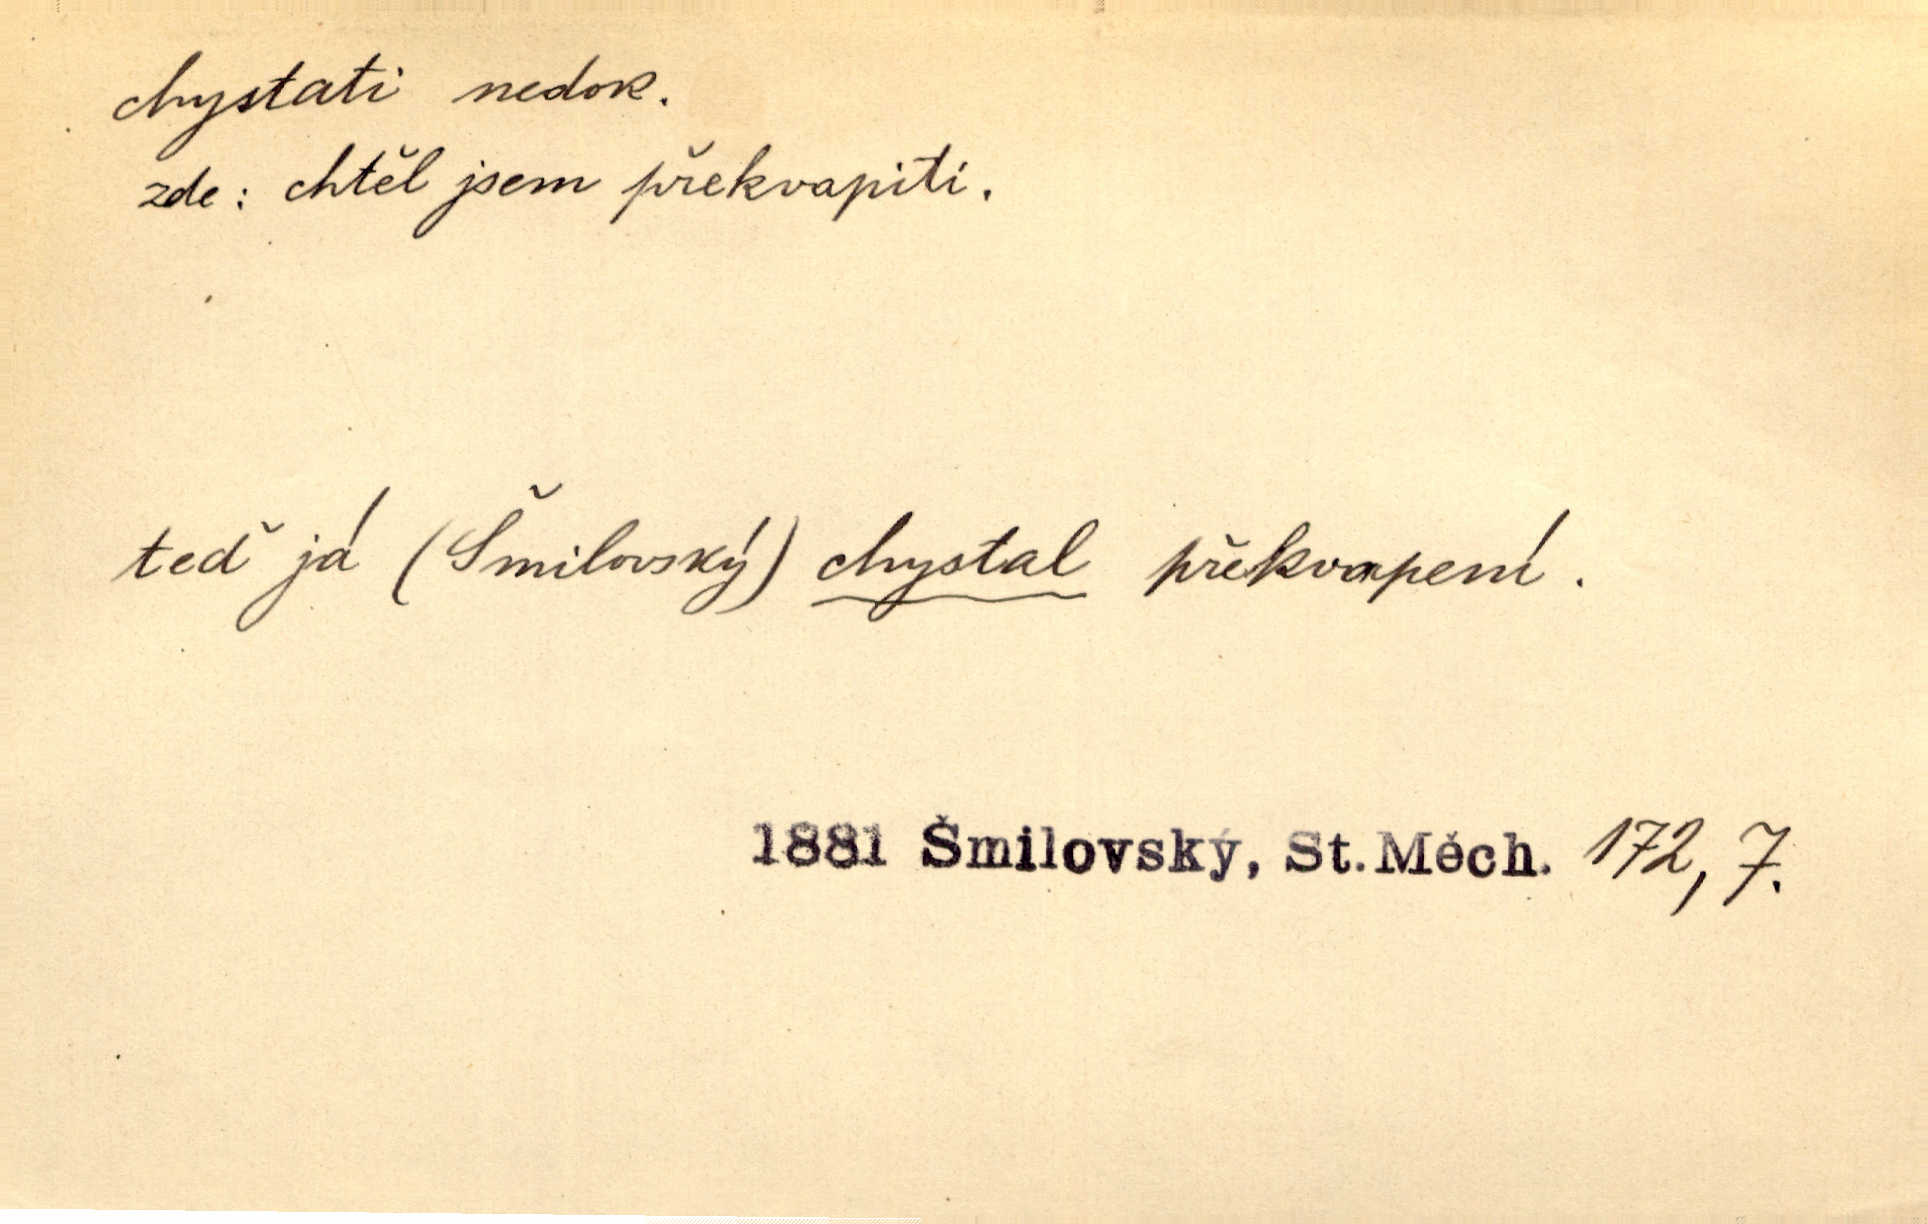 chystati nedok.
zde: chtěl jsem překvapiti.
teď já (Šmilovský) chystal překvapení.
1881 Šmilovský, St.Měch. 172, 7.